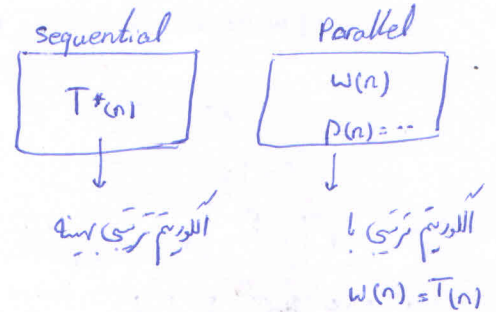 Sequential
T*(n)
الگوریتم ترتیبی بهینه
Parallel
W(n)
P(n) = --
الگوریتم ترتیبی با
W(n) = T(n)